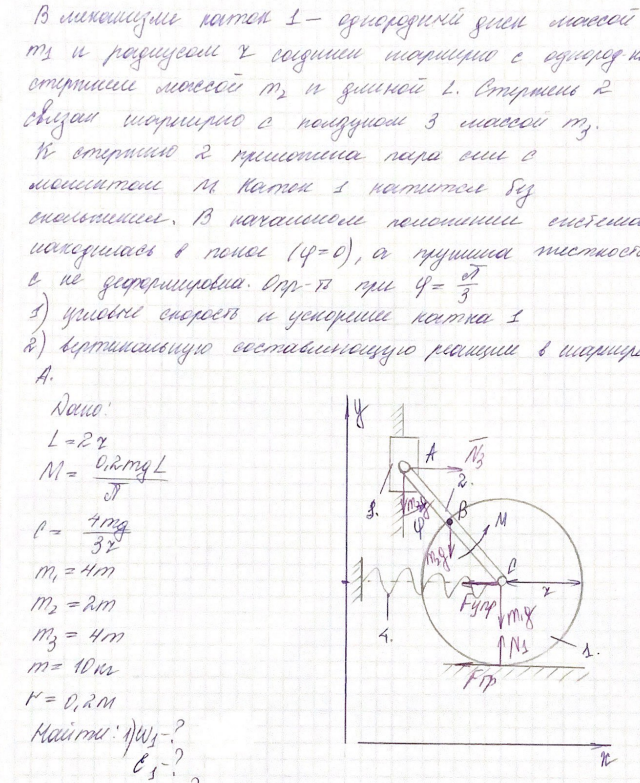 В механизме каток 1 – однородный диск массой
m1 и радиусом r соединен шарнирно с однород-н
стержнем массой m2 и длиной L. Стержень 2
связан шарнирно с ползуном 3 массой m3.
К стержню 2 приложена пара сил с
моментом M. Каток 1 катится без
скольжения. В начальном положении система
находилась в покое (φ=0), а пружина жесткость
c не деформирована. Опр-ть при φ = π/3
1) угловые скорость и ускорение катка 1
2) вертикальную составляющую реакции в шарнире
A.
Дано:
L = 2r
M = 0,2mgL/π
C = 4mg/3r
m1 = 4m
m2 = 2m
m3 = 4m
m = 10кг
r = 0,2м
Найти: 1) W1 - ?
ε1 - ?
y
A
N3
2.
3.
m3g
φ
B
M
m2g
C
r
Fупр
m1g
4.
N1
1.
Fтр
x